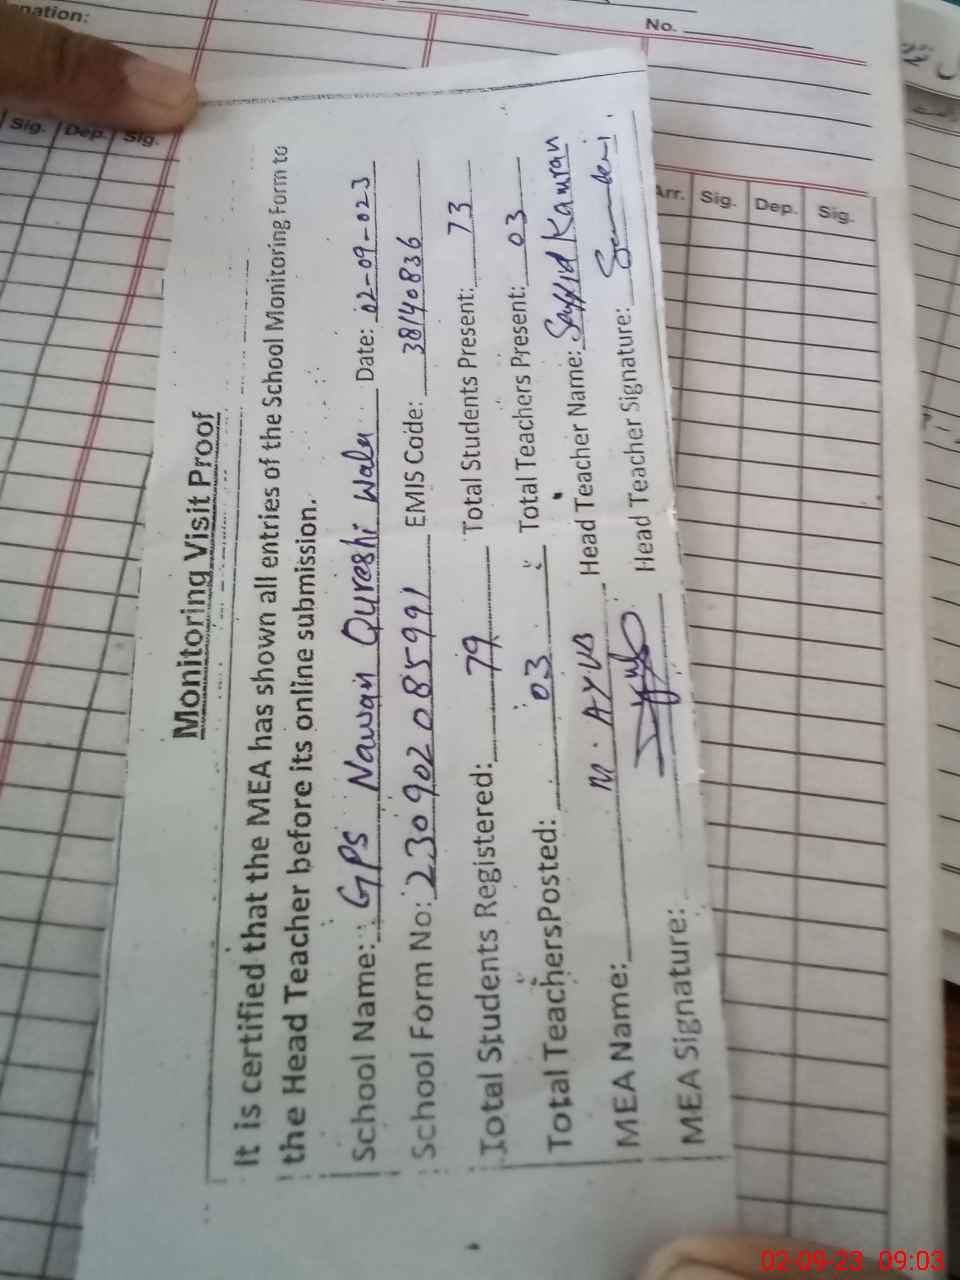 nation:
No.
Sig. Dep. Sig.
Arr. Sig. Dep. Sig.
Monitoring Visit Proof
It is certified that the MEA has shown all entries of the School Monitoring Form to
the Head Teacher before its online submission.
School Name: GPS Nawan Qureshi Wala Date: 02-09-023
School Form No: 230902085991 EMIS Code: 38140836
Total Students Registered: 79 Total Students Present: 73
Total TeachersPosted: 03 Total Teachers Present: 03
MEA Name: M. AYUB Head Teacher Name: Sayyid Kamran
MEA Signature: Head Teacher Signature:
02-09-23 09:03